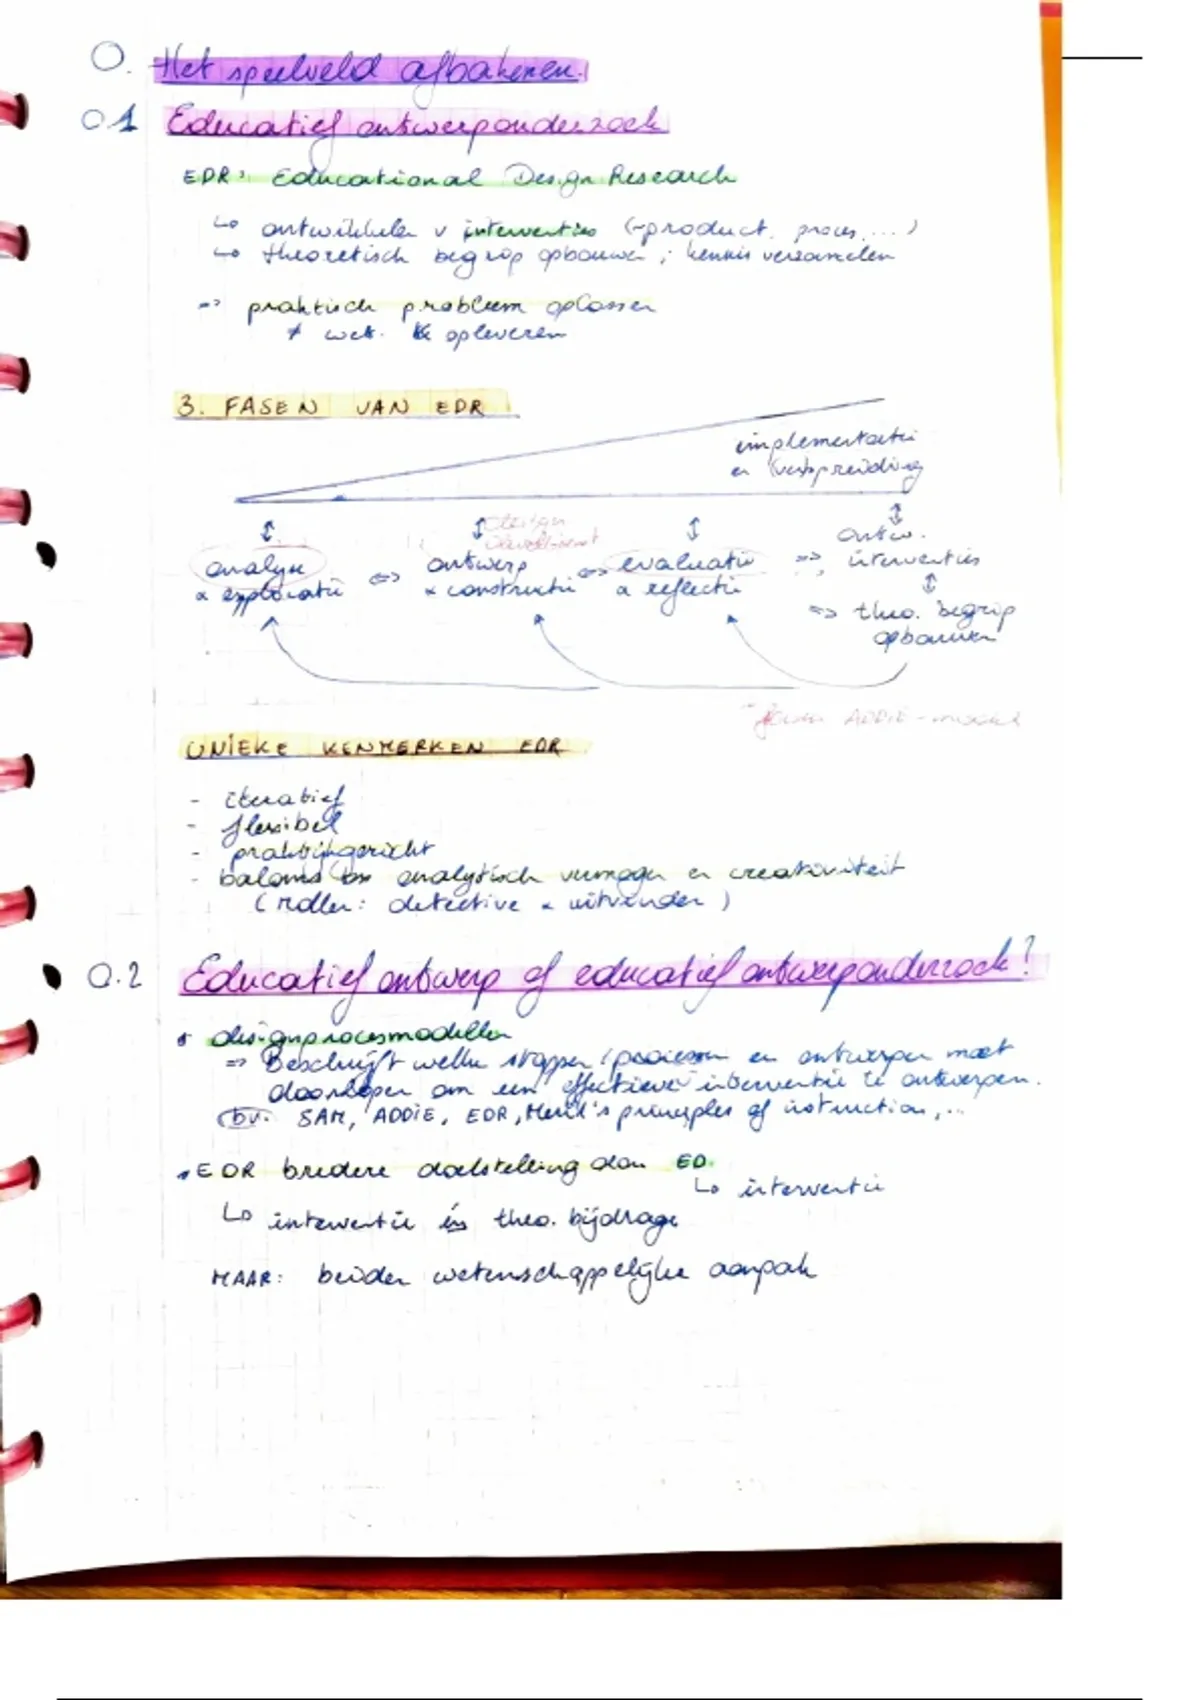 0. Het speelveld afbakenen.
0.1 Educatief ontwerponderzoek
EDR: Educational Design Research
↳ ontwikkelen v interventies (~product, proces, ...)
↳ theoretisch begrip opbouwen ; kennis verzamelen
=> praktisch probleem oplossen
≠ wet. opleveren
3. FASEN VAN EDR
implementatie
en (verspreiding
analyse
& exploratie
<=>
design
development
ontwerp
& constructie
<=>
evaluatie
& reflectie
=> ontw.
interventies
=> theo. begrip
opbouwen
ADDIE-model
UNIEKE KENMERKEN EDR
- iteratief
- flexibel
- praktijkgericht
- balans tss analytisch vermogen en creativiteit
(rollen: detective & uitvinder)
0.2 Educatief ontwerp of educatief ontwerponderzoek?
• designprocesmodellen
=> Beschrijft welke stappen / processen en ontwerper moet
doorlopen om een effectieve interventie te ontwerpen.
bv. SAM, ADDIE, EDR, Merill's principles of instruction,...
• EDR bredere doelstelling dan ED.
↳ interventie
↳ interventie én theo. bijdrage
MAAR: beiden wetenschappelijke aanpak